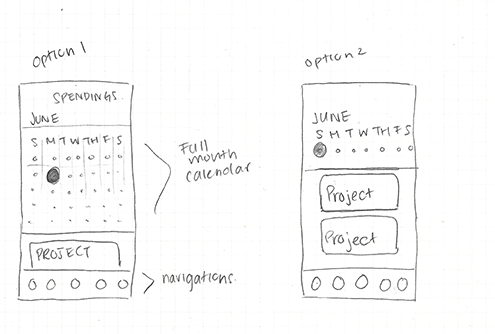 option 1
SPENDINGS
JUNE
S M T W TH F S
Full
month
calendar
PROJECT
navigations
option 2
JUNE
S M T W TH F S
Project
Project